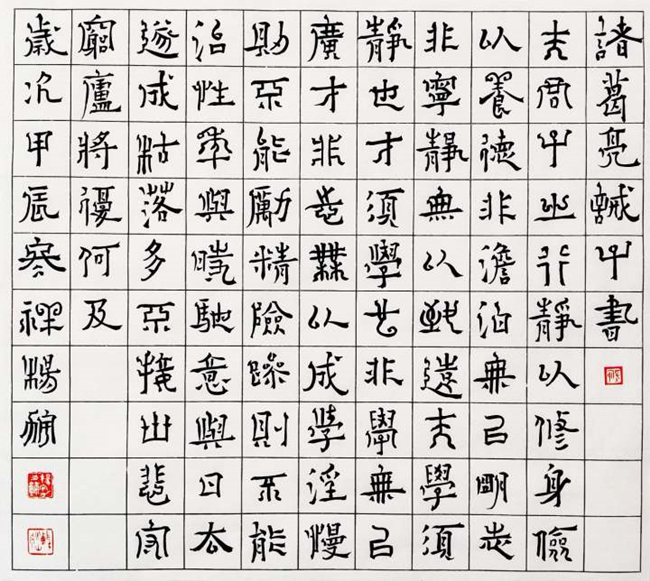 諸葛亮誡子書
夫君子之行靜以修身儉
以養德非澹泊無以明志
非寧靜無以致遠夫學須
靜也才須學也非學無以
廣才非志無以成學淫慢
則不能勵精險躁則不能
治性年與時馳意與日去
遂成枯落多不接世悲守
窮廬將復何及
歲次甲辰楊